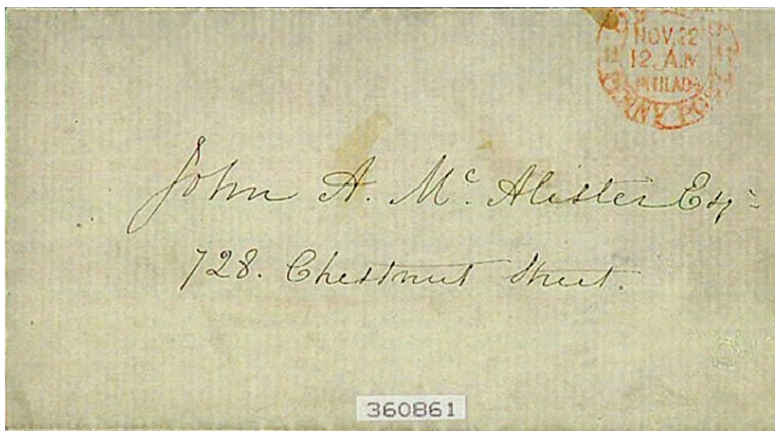 NOV.22
12.A.M
PHILADA
PENNY PO
John A. Mc. Alister Esqr
728. Chestnut Street.
360861